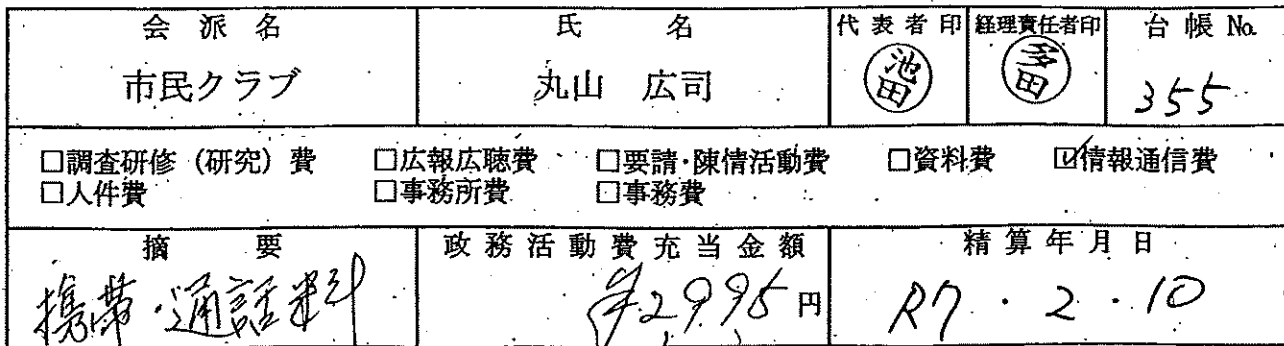 会派名 氏名 代表者印 経理責任者印 台帳No.
市民クラブ 丸山 広司 池田 多田 355
□調査研修(研究)費 □広報広聴費 □要請・陳情活動費 □資料費 ☑情報通信費
□人件費 □事務所費 □事務費
摘要 政務活動費充当金額 精算年月日
携帯・通話料 ¥2,995円 R7・2・10